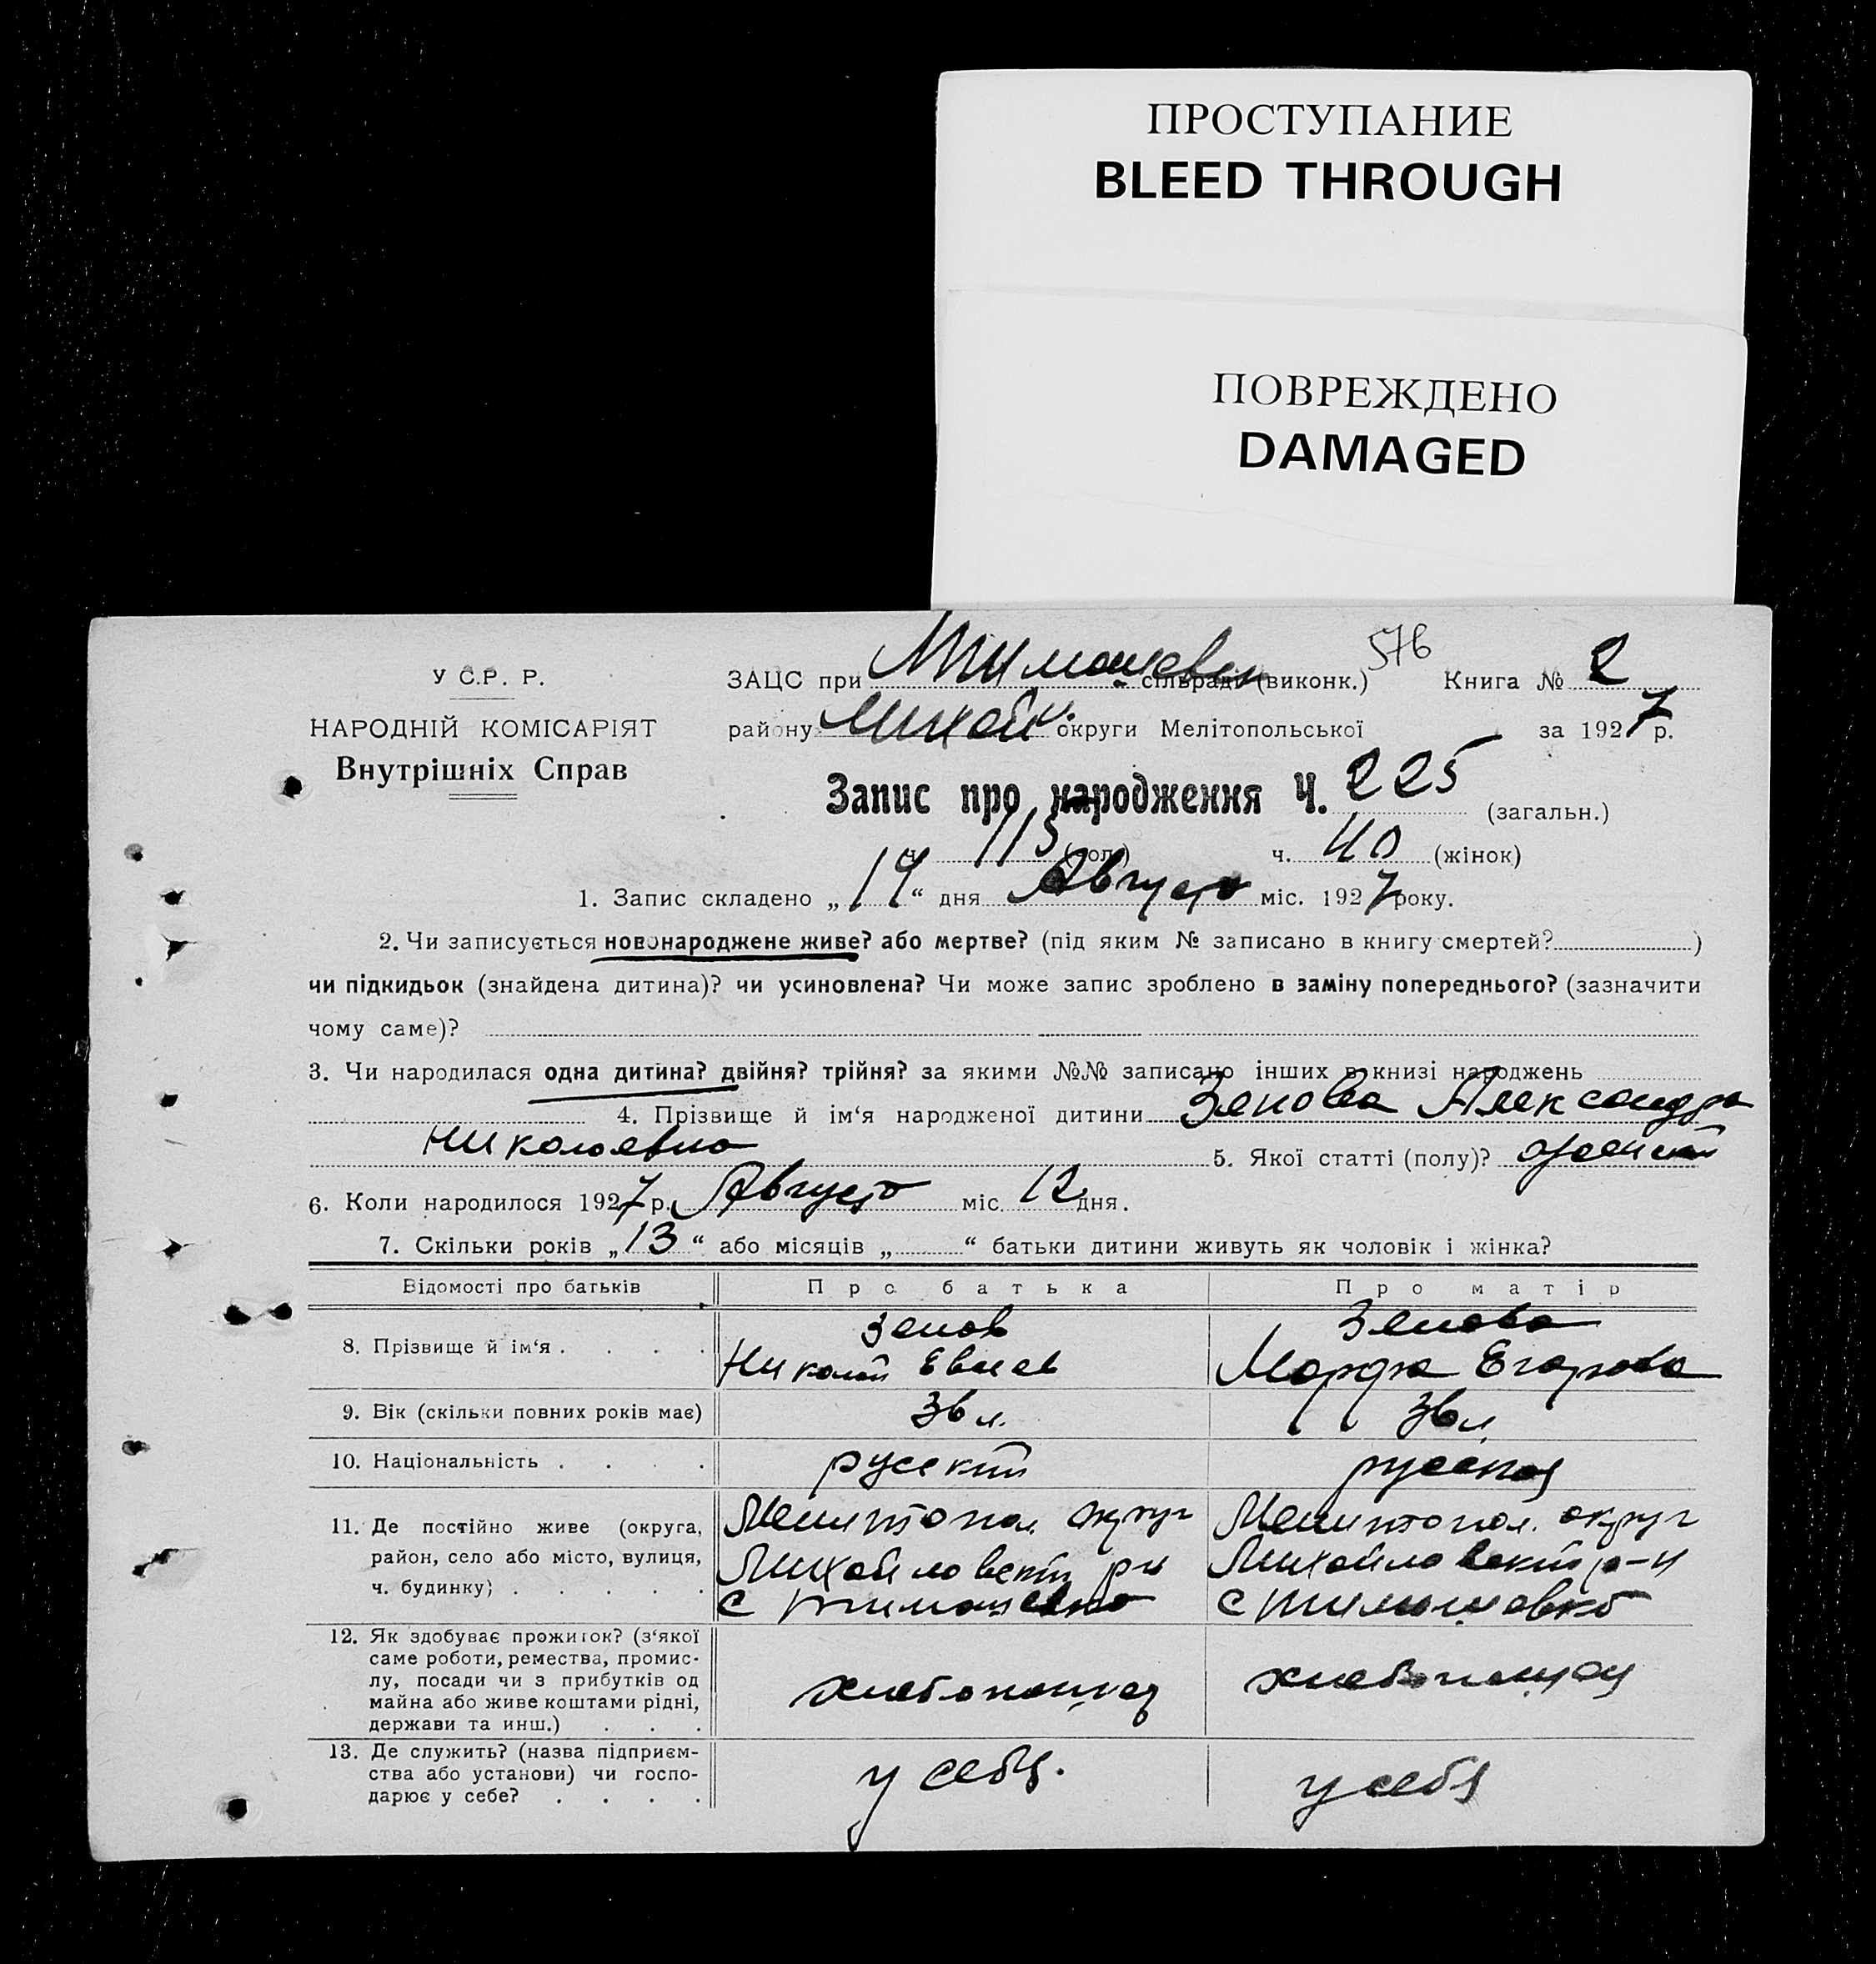 ПРОСТУПАНИЕ
BLEED THROUGH
ПОВРЕЖДЕНО
DAMAGED
576
У С.Р. Р.
НАРОДНІЙ КОМІСАРІЯТ
Внутрішніх Справ
ЗАЦС при Тимошевск сільради (виконк.) Книга № 2
району Михайл. округи Мелітопольської за 1927 р.
Запис про народження Ч. 225 (загальн.)
ч. 115 (чол.) ч. 110 (жінок)
1. Запис складено „19“ дня Августа міс. 1927 року.
2. Чи записується новонароджене живе? або мертве? (під яким № записано в книгу смертей? )
чи підкидьок (знайдена дитина)? чи усиновлена? Чи може запис зроблено в заміну попереднього? (зазначити
чому саме)?
3. Чи народилася одна дитина? двійня? трійня? за якими №№ записано інших в книзі народжень
4. Прізвище й ім‘я народженої дитини Зенова Александра
Николаевна 5. Якої статті (полу)? женский
6. Коли народилося 1927 р. Августа міс. 12 дня.
7. Скільки років „13“ або місяців „ “ батьки дитини живуть як чоловік і жінка?
Відомості про батьків Про батька Про матір
8. Прізвище й ім‘я . . . . Зенов Зенова
Николай Марфа Егорова
9. Вік (скільки повних років має) 36 л. 36 л.
10. Національність . . . . русский русская
11. Де постійно живе (округа, Мелитопол. округ Мелитопол. округ
район, село або місто, вулиця, Михайловский р-н Михайловский р-н
ч. будинку) . . . . . с Тимошевка с Тимошовка
12. Як здобуває прожиток? (з‘якої
саме роботи, ремества, промис-
лу, посади чи з прибутків од хлебопашец хлебопашец
майна або живе коштами рідні,
держави та инш.) . . .
13. Де служить? (назва підприєм-
ства або установи) чи госпо- у себя. у себя
дарює у себе? . . . .